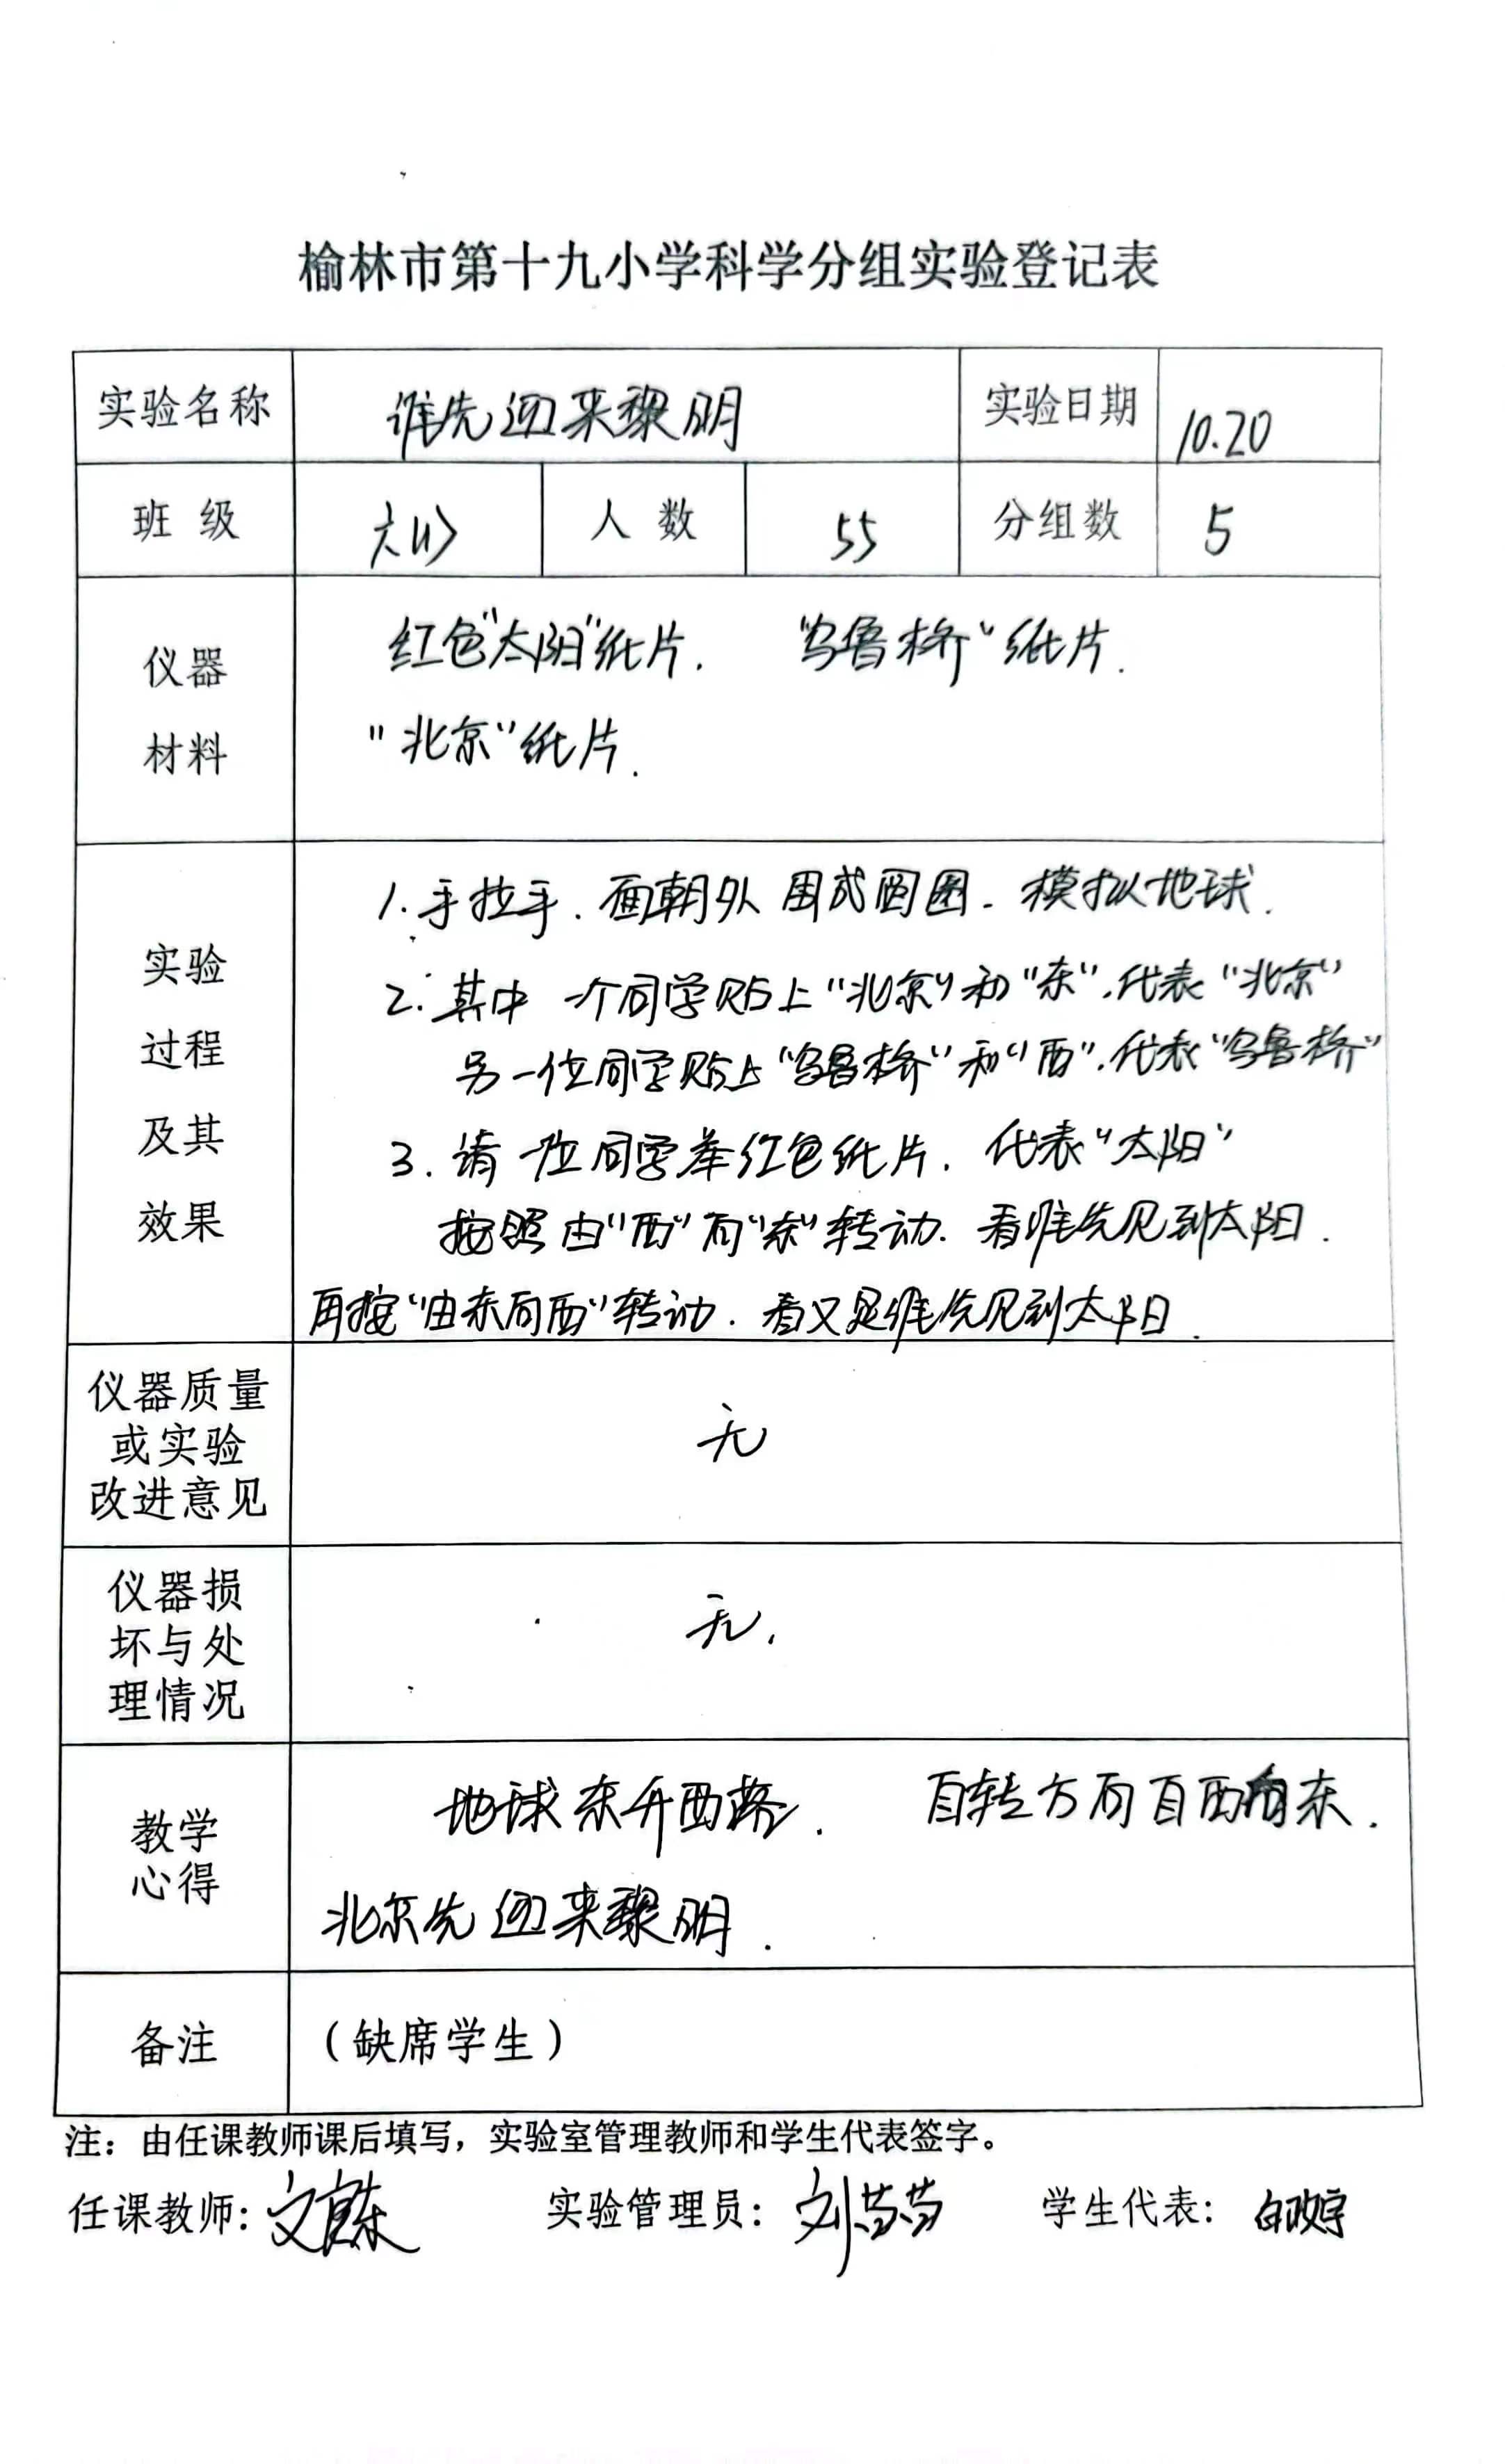 榆林市第十九小学科学分组实验登记表
实验名称 谁先迎来黎明 实验日期 10.20
班级 六(1) 人数 55 分组数 5
仪器
材料
红色"太阳"纸片. "乌鲁木齐"纸片.
"北京"纸片.
实验
过程
及其
效果
1. 手拉手. 面朝外 围成圆圈. 模拟地球.
2. 其中 一个同学贴上"北京"和"东".代表"北京"
另一位同学贴上"乌鲁木齐"和"西".代表"乌鲁木齐"
3. 请一位同学举红色纸片. 代表"太阳"
按照由"西"向"东"转动. 看谁先见到太阳.
再按"由东向西"转动. 看又是谁先见到太阳.
仪器质量
或实验
改进意见
无
仪器损
坏与处
理情况
无.
教学
心得
地球东升西落. 自转方向自西向东.
北京先迎来黎明.
备注 （缺席学生）
注：由任课教师课后填写，实验室管理教师和学生代表签字。
任课教师: 实验管理员: 刘苗苗 学生代表: